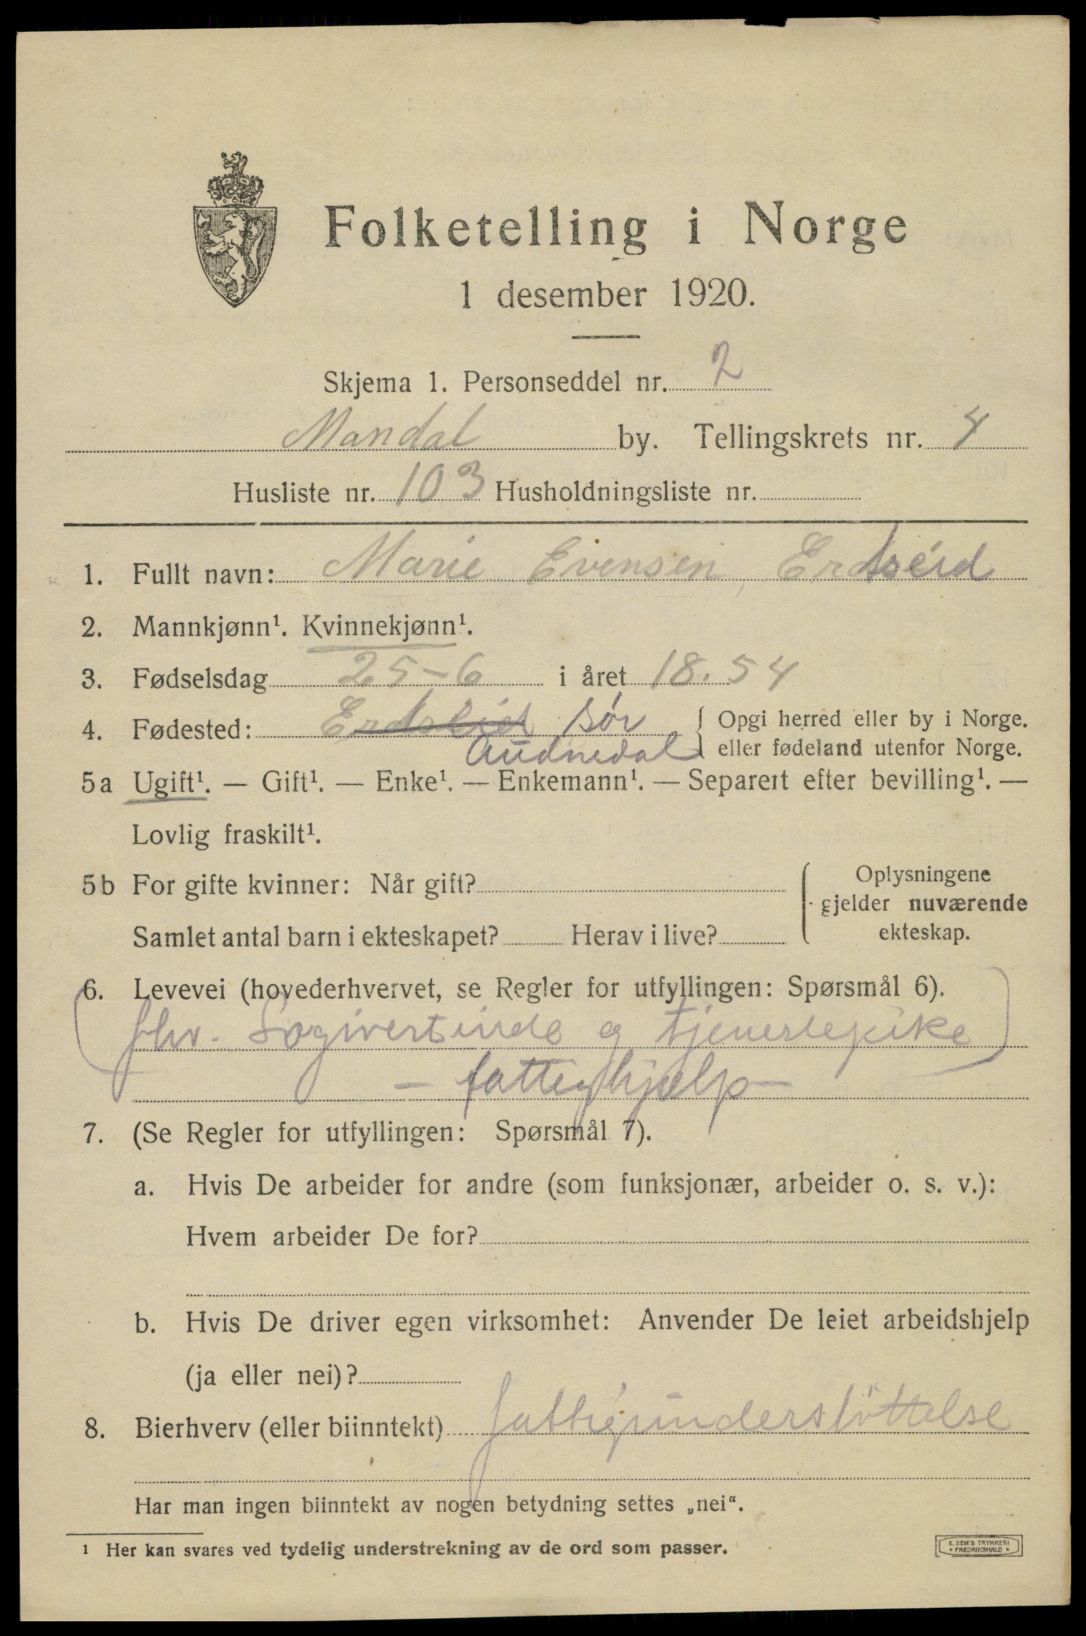 Folketelling i Norge
1 desember 1920.
Skjema 1. Personseddel nr. 2
Mandal by. Tellingskrets nr. 4
Husliste nr. 103 Husholdningsliste nr.
1. Fullt navn: Marie Evensen, Erdsleid
2. Mannkjønn¹. Kvinnekjønn¹.
3. Fødselsdag 25-6 i året 18.54
4. Fødested: Erdsleid Sør { Opgi herred eller by i Norge.
Audnedal eller fødeland utenfor Norge.
5a Ugift¹. — Gift¹. — Enke¹. — Enkemann¹. — Separert efter bevilling¹. —
Lovlig fraskilt¹.
5b For gifte kvinner: Når gift? { Oplysningene
gjelder nuværende
Samlet antal barn i ekteskapet? Herav i live? ekteskap.
6. Levevei (hovederhvervet, se Regler for utfyllingen: Spørsmål 6).
(fhv. Logivertinde og tjenestepike)
- fattighjælp -
7. (Se Regler for utfyllingen: Spørsmål 7).
a. Hvis De arbeider for andre (som funksjonær, arbeider o. s. v.):
Hvem arbeider De for?
b. Hvis De driver egen virksomhet: Anvender De leiet arbeidshjelp
(ja eller nei)?
8. Bierhverv (eller biinntekt) fattigunderstöttelse
Har man ingen biinntekt av nogen betydning settes „nei“.
¹ Her kan svares ved tydelig understrekning av de ord som passer.
E. SEM'S TRYKKERI
* FREDRIKSHALD *